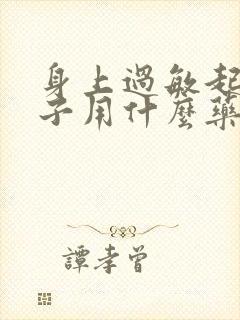 身上過敏起
子用什麼藥
譚孝曾